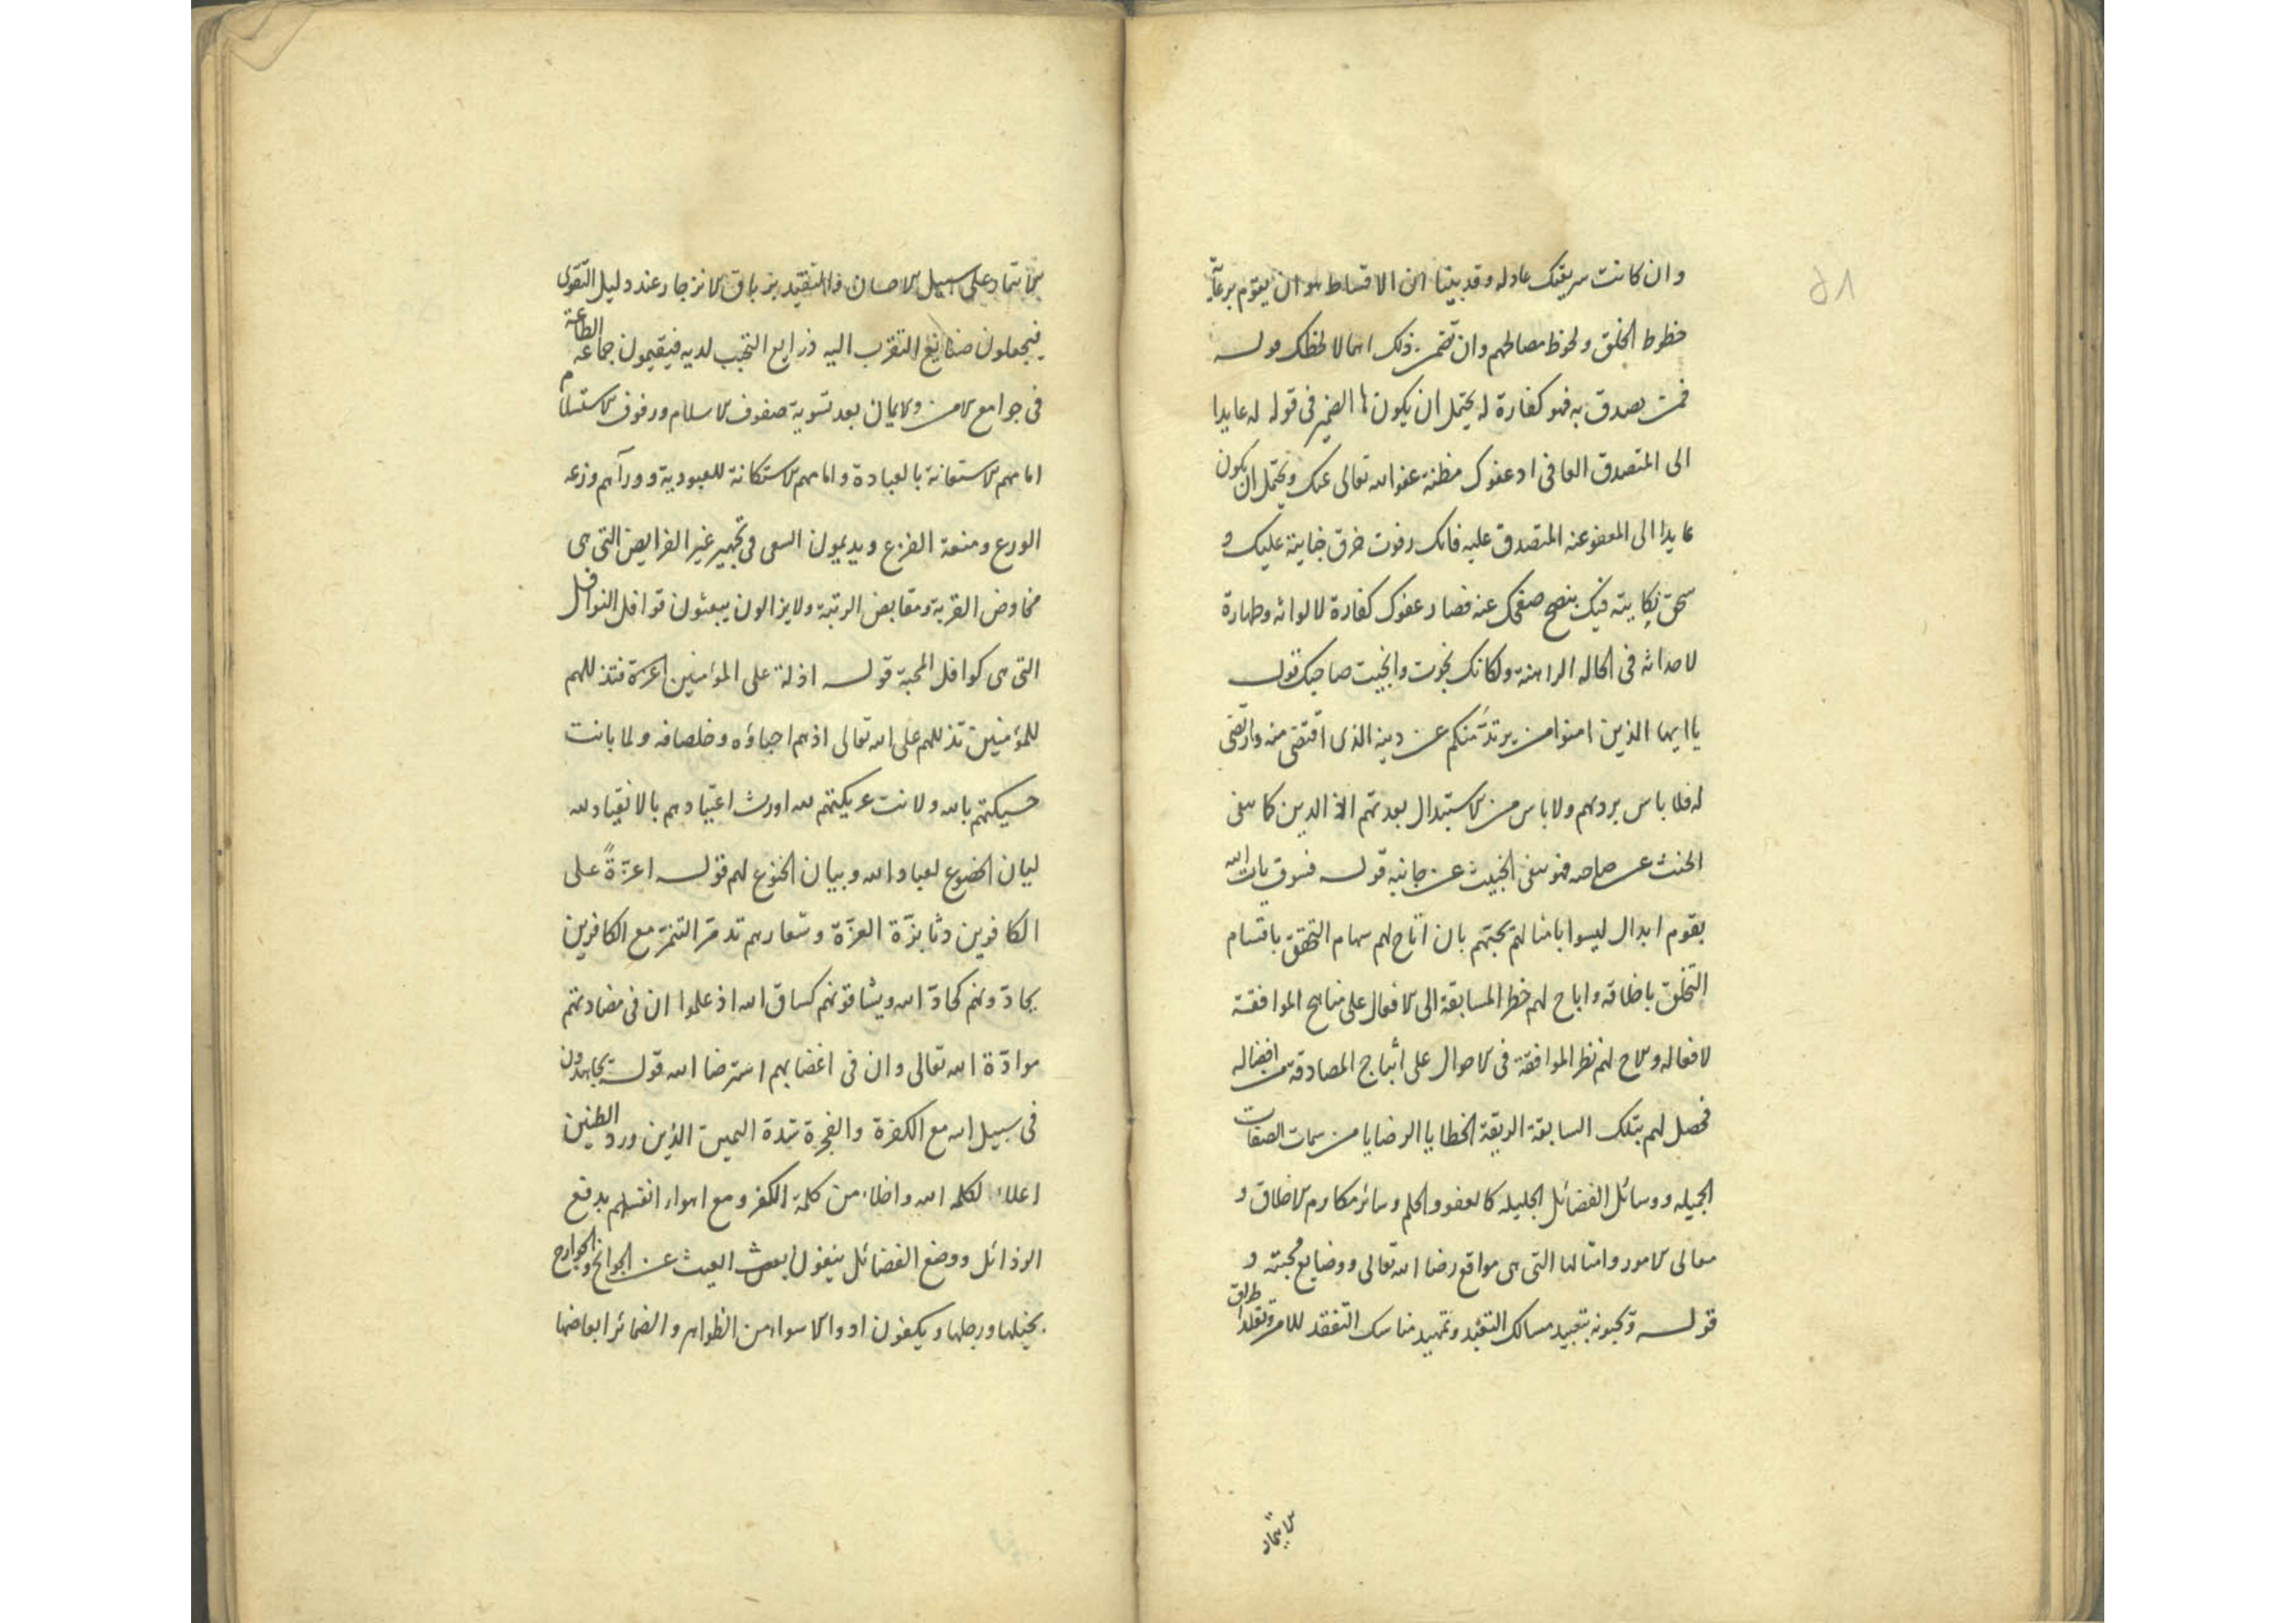 وان كانت سريقتك عادله وقد بينا ان الاقساط هو ان يقوم برعاية
حظوظ الخلق ولحوظ مصالحهم وان تضمن ذلك اهمالا لحظك قوله
فمن تصدق به فهو كفارة له يحتمل ان يكون الضمير فى قوله له عايدا
الى المتصدق العافى اذ عفوك مظنة عفو الله تعالى عنك ويحتمل ان يكون
عايدا الى المعفو عنه المتصدق عليه فانك رفوت خرق جنايته عليك و
نكايته فيك بنصح صفحك عنه فصار عفوك كفارة لالواثه وطهارة
لاحداثه فى الحاله الراهنة ولكانك نجوت وانجيت صاحبك قوله
يا ايها الذين امنوا من يرتد منكم عن دينه الذى اقتضى منه وارتضى
له فلا باس بردهم ولا باس من الاستبدال بعدتهم الدين كما ينفى
الخبث عن صاحبه فهو ينفى الخبيث عن جانبه قوله فسوف يات الله
بقوم ابدال ليسوا بامثالهم يحبهم بان اتاح لهم سهام التحقق باقسام
التخلق باخلاقه واباح لهم خطر المسابقة الى الافعال على مناهج الموافقة
لافعاله ولاح لهم نظر الموافقة فى الاحوال على اثباج المصادقة من افضاله
فحصل لهم بتلك السابقة الخطايا الرضايا من سمات الصفات
الجميله ووسائل الفضائل الجليله كالعفو والحلم وسائر مكارم الاخلاق و
معالى الامور وامثالها التى هى مواقع رضا الله تعالى ووضايع محبته و
قوله ويحبونه بتعبيد مسالك التعبد وتمهيد مناسك التفقد للامر وتقلد اطراق
الايتمار
الايتمار على سبيل الاحسان والتقيد بزباق الانزجار عند دليل التقوى
فيجعلون صنايع التقرب اليه ذرايع التحبب لديه فيقيمون جماعة الطاعة
فى جوامع الامن والايمان بعد تسوية صفوف الاسلام ورفوف الاستسلام
امامهم الاستعانة بالعبادة وامامهم الاستكانة للعبودية وورآهم وزعه
الورع ومنعة الفزع ويديمون السعى فى تجهيز عير الفرايض التى هى
مخاوض القربة ومقابض الرتبة ولا يزالون يبعثون قوافل النوافل
التى هى كوافل المحبة قوله اذلة على المؤمنين اعزة فتذللهم
للمؤمنين تذللهم على الله تعالى اذ هم احباؤه وخلصاؤه ولما بانت
حسيكتهم بالله ولانت عريكتهم لله اورث اعتيادهم بالانقياد لله
ليان الخضوع لعباد الله وبيان الخنوع لهم قوله اعزة على
الكافرين دثار بزة العزة وشعارهم تدمر التنمر مع الكافرين
يحادونهم كحاد الله ويشاقونهم كشاق الله اذ علموا ان فى مضادتهم
موادة الله تعالى وان فى اغضابهم استرضا الله قوله يجاهدون
فى سبيل الله مع الكفرة والفجرة شدة الدين ورد الطنين
اعلاء لكلمه الله واخلاء من كلمة الكفر ومع اهواء انفسهم بدفع
الرذائل ووضع الفضائل ينفون العيث عن الجوانح والجوارح
بخيلها ورجلها ويكفون ادواء الاسواء من الظواهر والضمائر ابعاضها